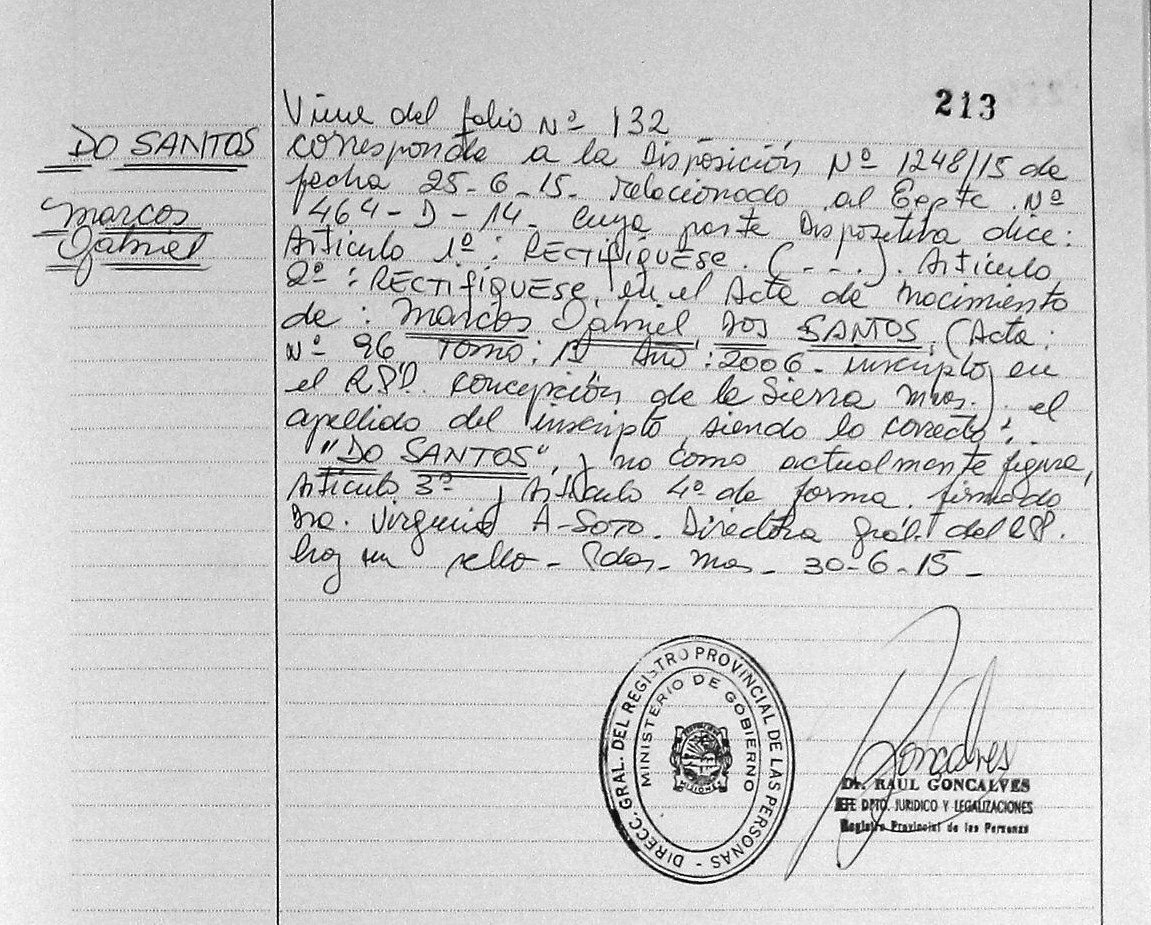 213
DO SANTOS
Marcos
Gabriel
Viene del folio Nº 132
corresponde a la Disposición Nº 1248/15 de
fecha 25-6-15. relacionado al Expte. Nº
1464-D-14- cuya parte Dispozitiva dice:
Articulo 1º: RECTIFIQUESE. (- - -.). Articulo
2º: RECTIFIQUESE, en el Acta de Nacimiento
de: Marcos Gabriel DOS SANTOS, (Acta:
Nº 96 Tomo: Año: 2006- inscripto, en
el R.P.P. Concepción de la Sierra Mnes.). el
apellido del inscripto, siendo lo correcto:
"DO SANTOS", y no como actualmente figura,
Articulo 3º y Articulo 4º de forma. firmado
Dra. Virginia A-Soto. Directora Gral. del RPP.
hay un sello- Pdas- Mnes- 30-6-15-
DIRECC. GRAL. DEL REGISTRO PROVINCIAL DE LAS PERSONAS -
MINISTERIO DE GOBIERNO
MISIONES
Goncalves
Dr. RAUL GONCALVES
JEFE DPTO. JURIDICO Y LEGALIZACIONES
Registro Provincial de las Personas